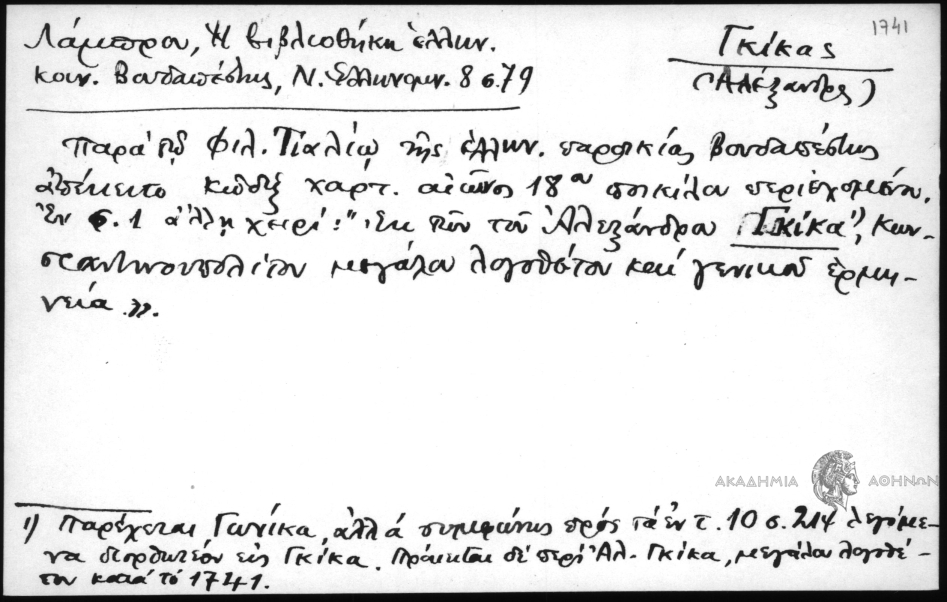 1741
Λάμπρου, Ἡ βιβλιοθήκη ἑλλην.
κοιν. Βουδαπέστης, Ν. Ἑλληνομν. 8 σ. 79
Γκίκας
(Ἀλέξανδρος)
Παρὰ τῷ Φιλ. Τιαλίῳ τῆς ἑλλην. παροικίας Βουδαπέστης
ἀπέκειτο κῶδιξ χαρτ. αἰῶνος 18ου ποικίλου περιεχομένου.
Ἐν φ. 1 ἄλλῃ χειρί: "Ἐκ τῶν τοῦ Ἀλεξάνδρου Γκίκα¹), Κων-
σταντινουπολίτου μεγάλου λογοθέτου καὶ γενικοῦ ἑρμη-
νεία».
1) Παρέχεται Γωνίκα, ἀλλὰ συμφώνως πρὸς τὰ ἐν τ. 10 σ. 214 λεγόμε-
να διορθωτέον εἰς Γκίκα. Πρόκειται δὲ περὶ Ἀλ. Γκίκα, μεγάλου λογοθέ-
του κατὰ τὸ 1741.
ΑΚΑΔΗΜΙΑ ΑΘΗΝΩΝ